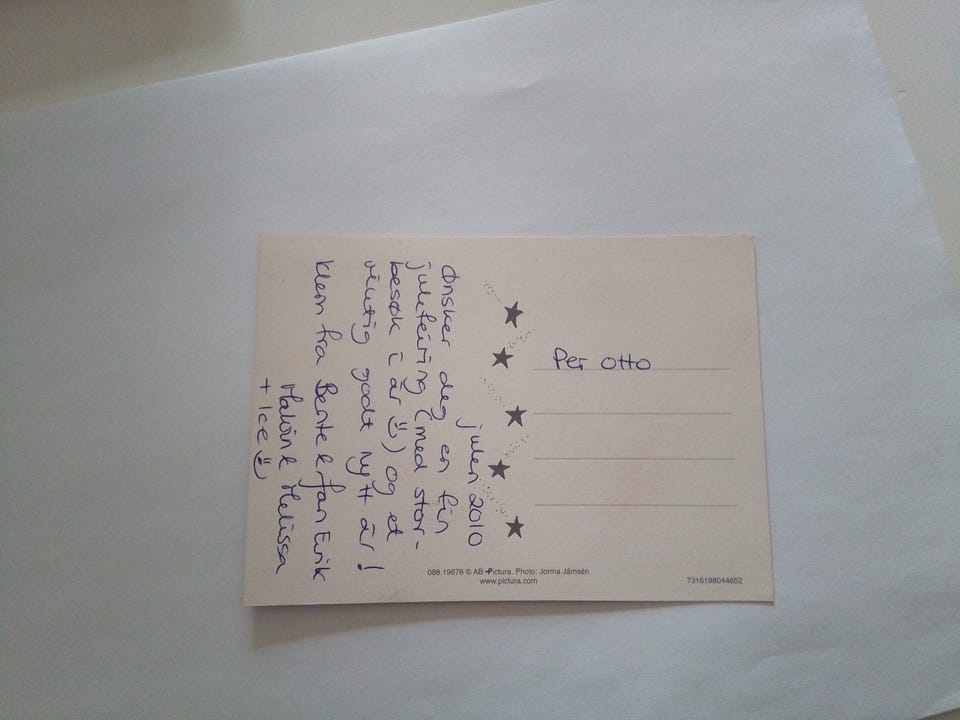 julen 2010
Ønsker deg en fin
julefeiring (med stor-
besøk i år ☺) og et
riktig godt nytt år!
Klem fra Bente & Jan Eirik
Malin & Melissa
+ Ice ☺
Per Otto
088.19676 © AB Pictura. Photo: Jorma Jämsén
www.pictura.com
7316198044652